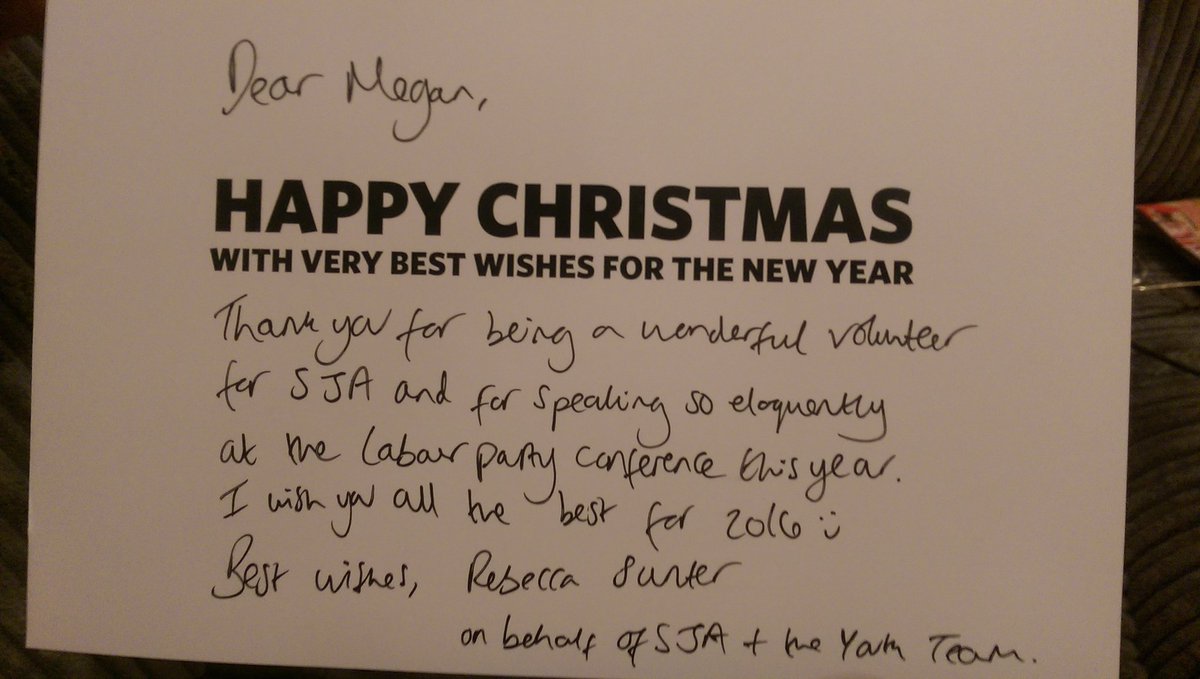 Dear Megan,
HAPPY CHRISTMAS
WITH VERY BEST WISHES FOR THE NEW YEAR
Thank you for being a wonderful volunteer
for SJA and for speaking so eloquently
at the Labour party conference this year.
I wish you all the best for 2016 :)
Best wishes, Rebecca Sunter
on behalf of SJA + the Youth Team.